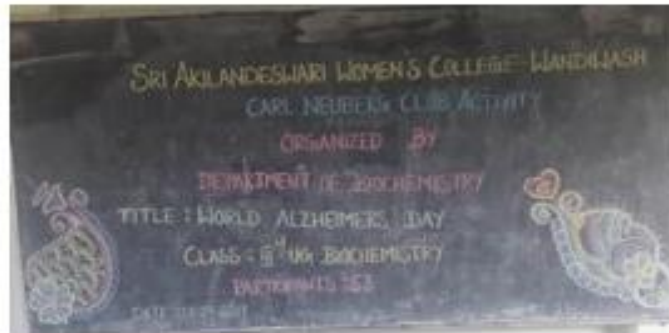 SRI AKILANDESWARI WOMEN'S COLLEGE - WANDIWASH
CARL NEUBERG CLUB ACTIVITY
ORGANIZED BY
DEPARTMENT OF BIOCHEMISTRY
TITLE : WORLD ALZHEIMERS DAY
CLASS : UG BIOCHEMISTRY
PARTICIPANTS :